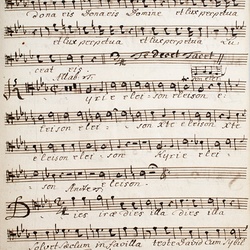 dona eis Dona eis Domine et lux perpetua
et lux perpetua et lux perpetua Lu
ceat eis
Kyrie elei son eleison e
leison elei son xte eleison xte
eleison elei son Kyrie elei
son eleison
Dies irae dies illa dies illa
Solvet saeclum in favilla teste David cum Sybil